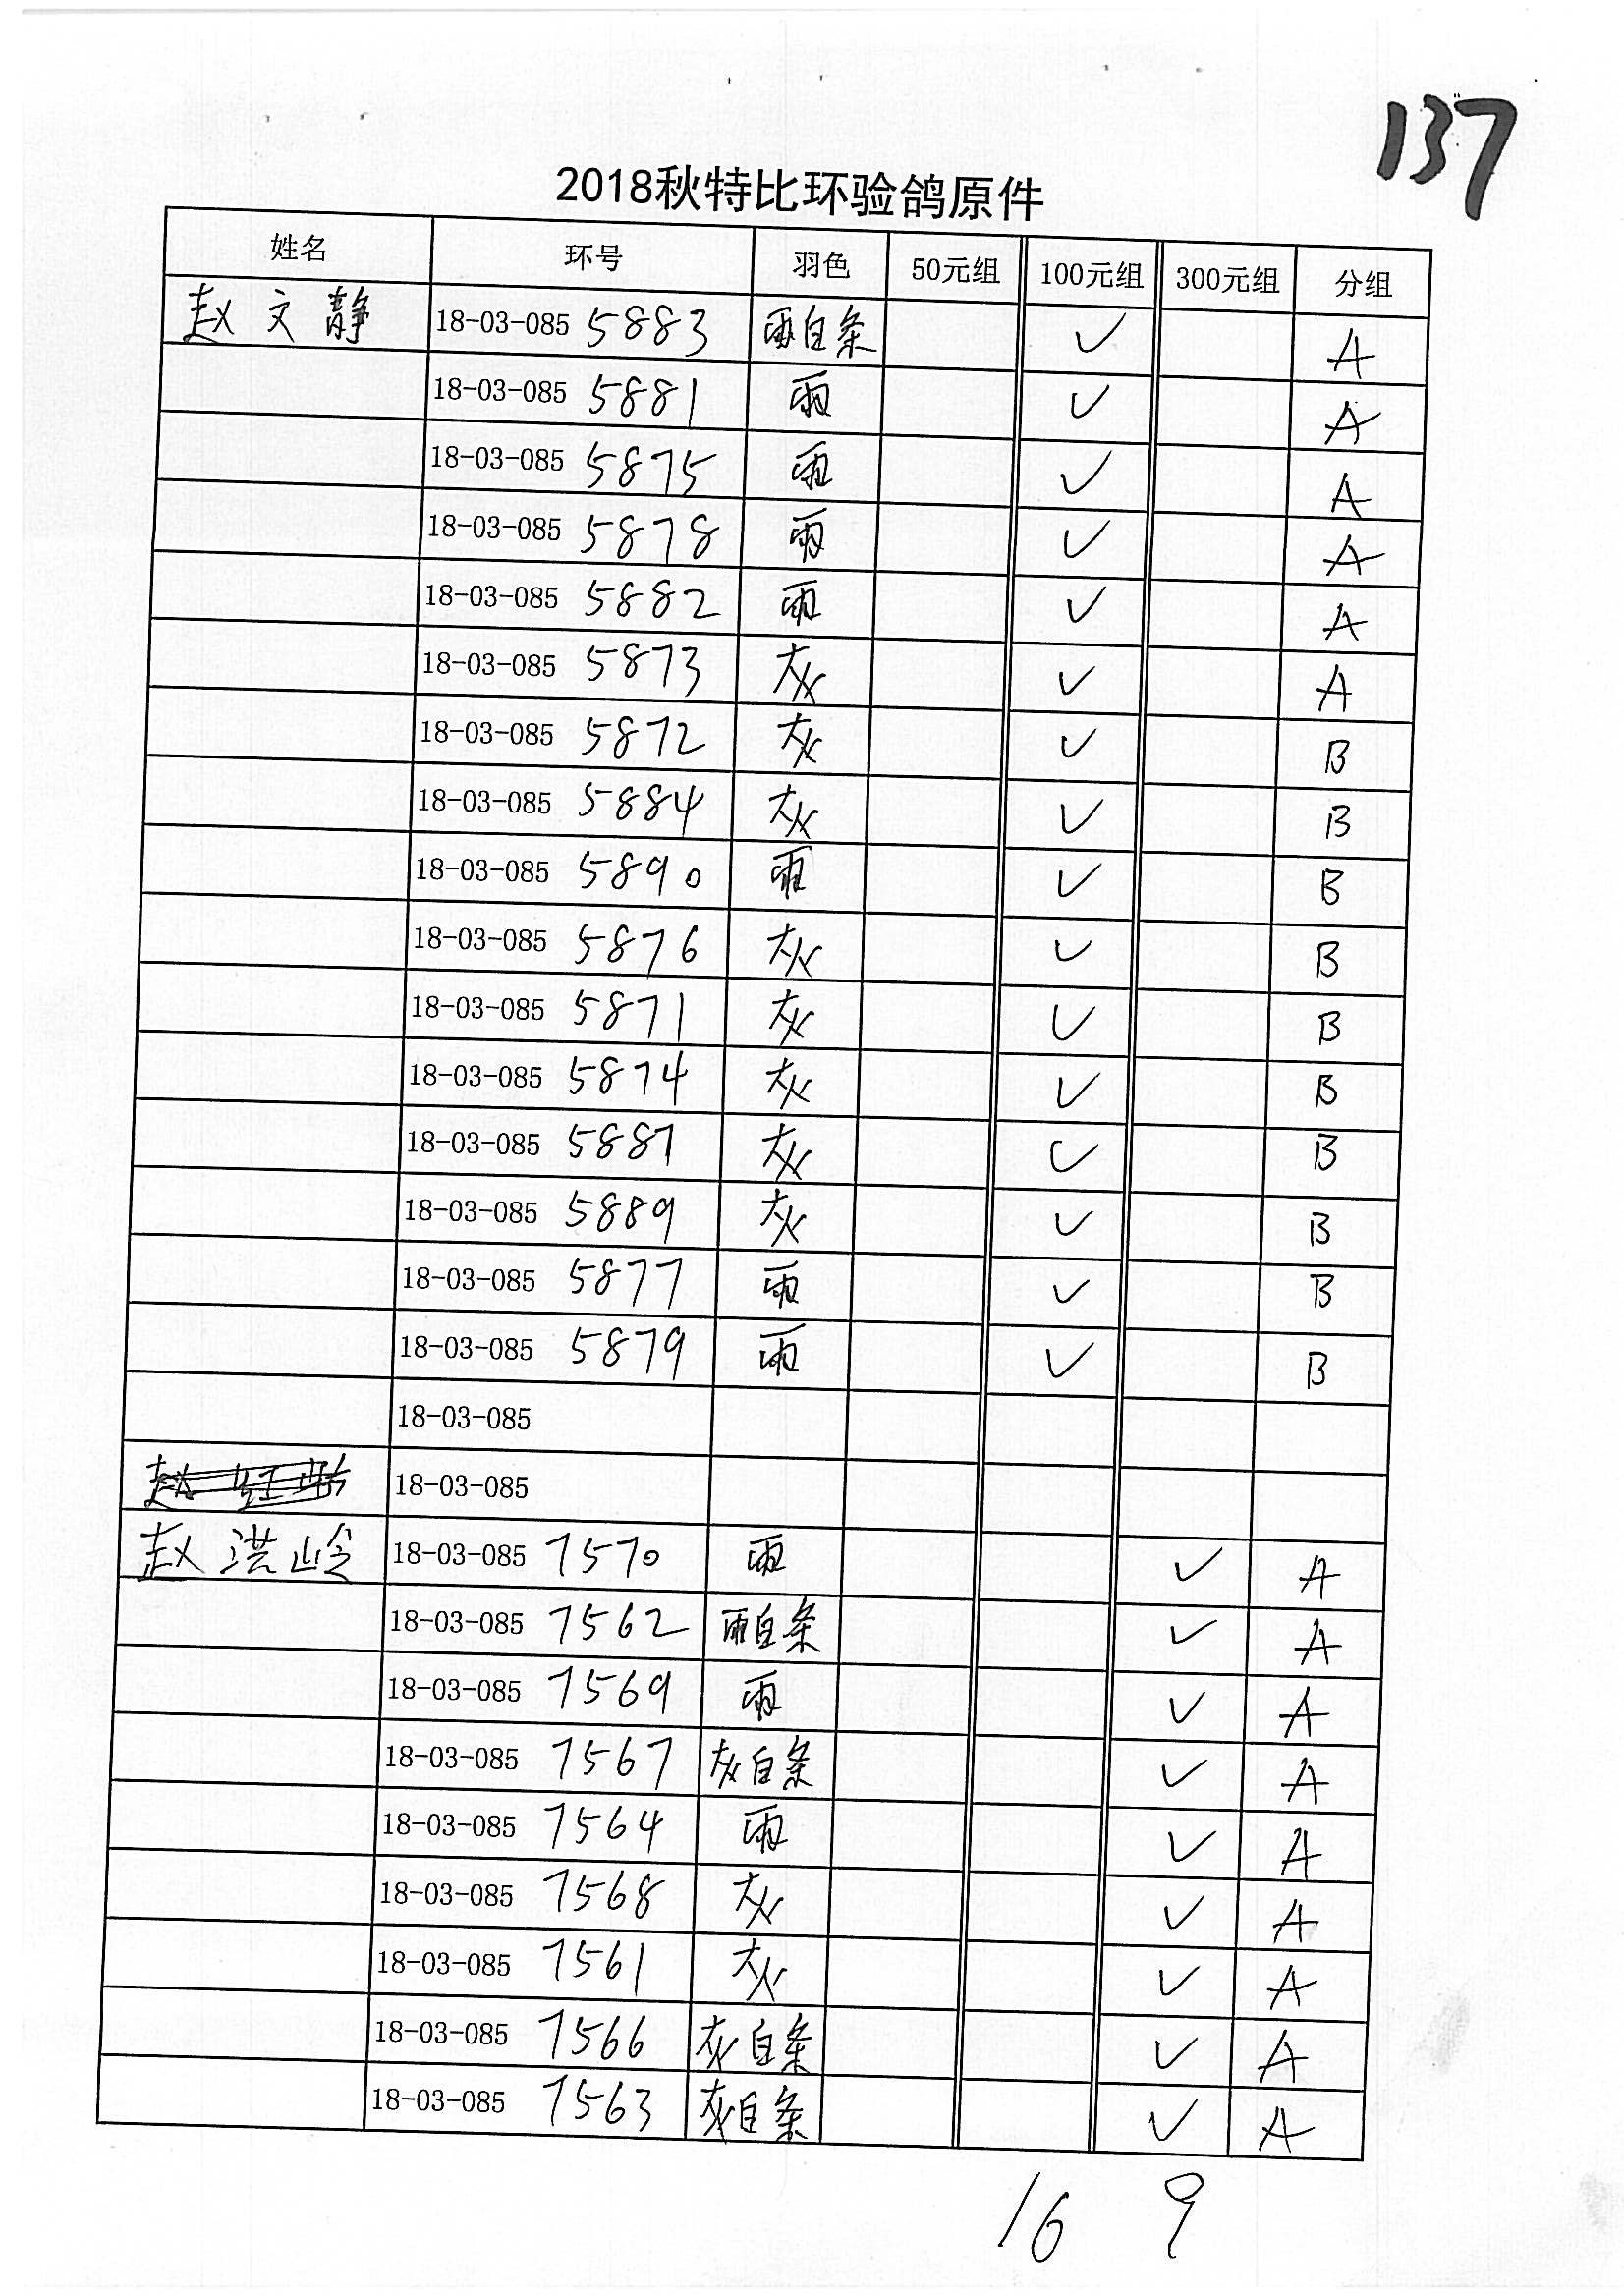 137
2018秋特比环验鸽原件
姓名 环号 羽色 50元组 100元组 300元组 分组
赵文静 18-03-085 5883 雨白条 ✓ A
18-03-085 5881 雨 ✓ A
18-03-085 5875 雨 ✓ A
18-03-085 5878 雨 ✓ A
18-03-085 5882 雨 ✓ A
18-03-085 5873 灰 ✓ A
18-03-085 5872 灰 ✓ B
18-03-085 5884 灰 ✓ B
18-03-085 5890 雨 ✓ B
18-03-085 5876 灰 ✓ B
18-03-085 5871 灰 ✓ B
18-03-085 5874 灰 ✓ B
18-03-085 5887 灰 ✓ B
18-03-085 5889 灰 ✓ B
18-03-085 5877 雨 ✓ B
18-03-085 5879 雨 ✓ B
18-03-085
18-03-085
赵洪岭 18-03-085 7570 雨 ✓ A
18-03-085 7562 雨白条 ✓ A
18-03-085 7569 雨 ✓ A
18-03-085 7567 灰白条 ✓ A
18-03-085 7564 雨 ✓ A
18-03-085 7568 灰 ✓ A
18-03-085 7561 灰 ✓ A
18-03-085 7566 灰白条 ✓ A
18-03-085 7563 灰白条 ✓ A
16 9